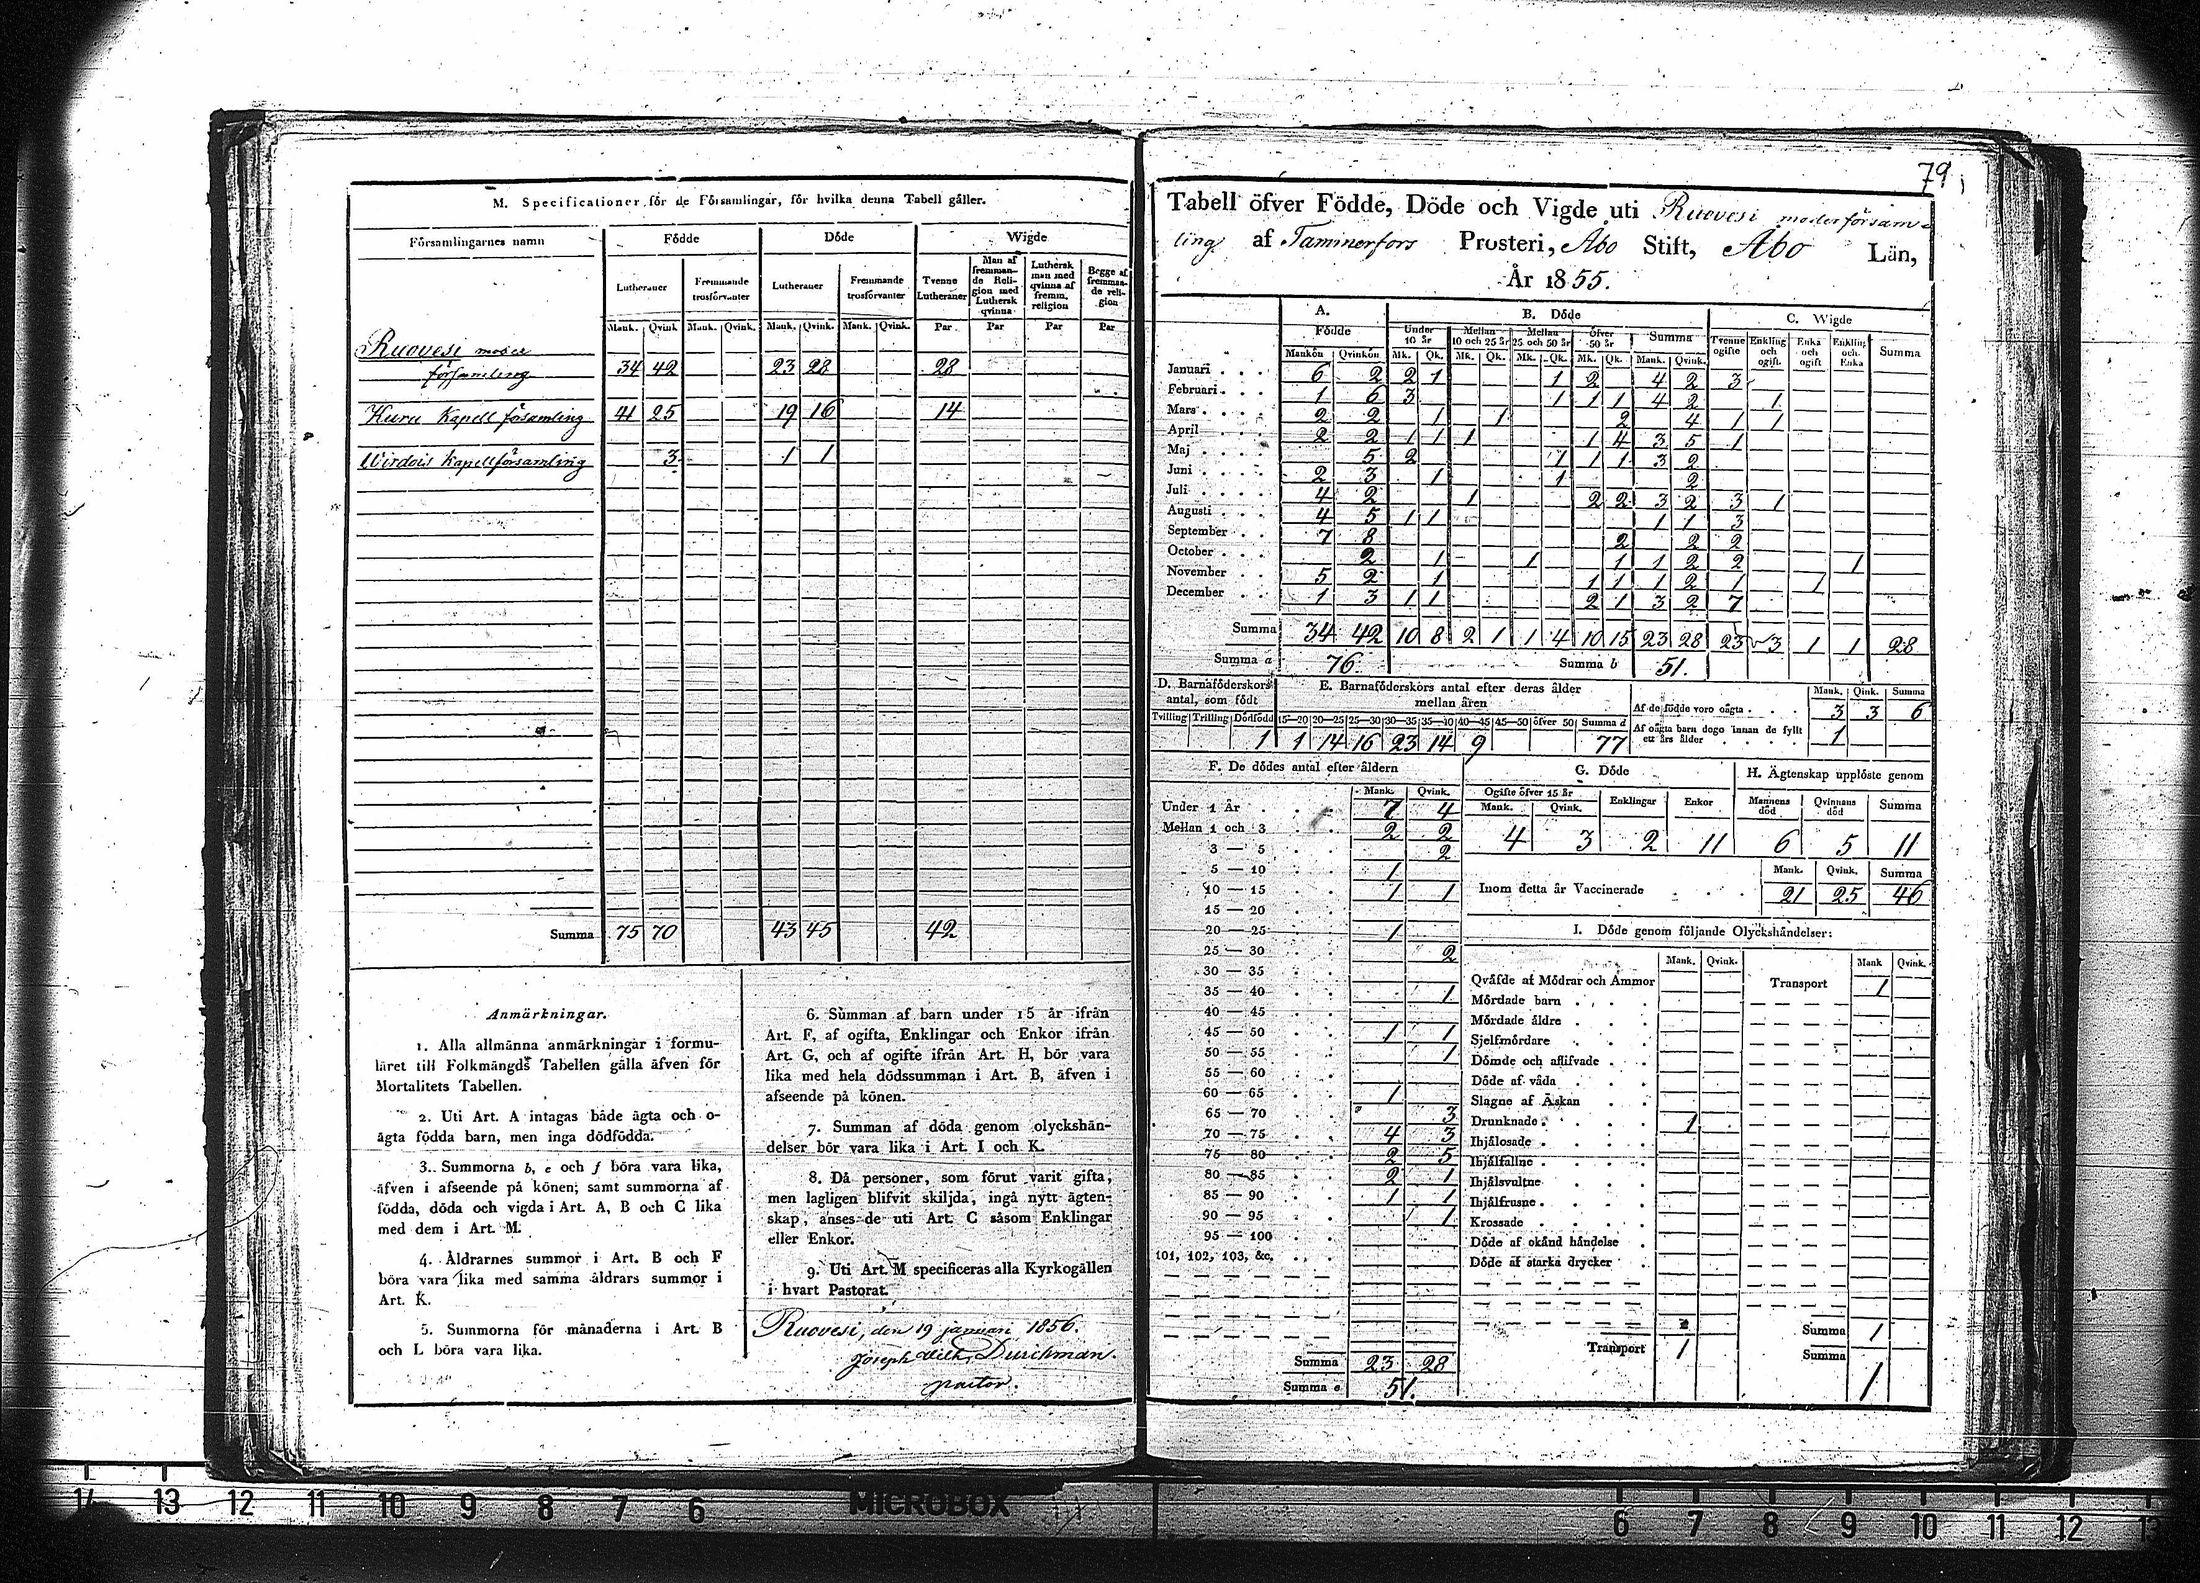 M. Specificationer för de Församlingar, för hvilka denna Tabell gäller.
Församlingarnes namn Födde Döde Wigde
Lutheraner Fremmande trosförvanter Lutheraner Fremmande trosförvanter Tvenne Lutheraner Man af fremmande Religion med Luthersk qvinna Luthersk man med qvinna af fremm. religion Begge af fremmande religion
Mank. Qvink Mank. Qvink. Mank. Qvink. Mank. Qvink. Par Par Par Par
Ruovesi moder
församling 34 42 23 28 28
Kuru Kapell församling 41 25 19 16 14
Wirdois Kapellförsamling 3 1 1
Summa 75 70 43 45 42
Anmärkningar.
1. Alla allmänna anmärkningar i formu-
läret till Folkmängds Tabellen gälla äfven för
Mortalitets Tabellen.
2. Uti Art. A intagas både ägta och o-
ägta födda barn, men inga dödfödda.
3. Summorna b, e och f böra vara lika,
äfven i afseende på könen; samt summorna af
födda, döda och vigda i Art. A, B och C lika
med dem i Art. M.
4. Åldrarnes summor i Art. B och F
böra vara lika med samma åldrars summor i
Art. K.
5. Summorna för månaderna i Art. B
och L böra vara lika.
6. Summan af barn under 15 år ifrån
Art. F, af ogifta, Enklingar och Enkor ifrån
Art. G, och af ogifte ifrån Art. H, bör vara
lika med hela dödssumman i Art. B, äfven i
afseende på könen.
7. Summan af döda genom olyckshän-
delser bör vara lika i Art. I och K.
8. Då personer, som förut varit gifta,
men lagligen blifvit skiljda, ingå nytt ägten-
skap, anses de uti Art. C såsom Enklingar
eller Enkor.
9. Uti Art. M specificeras alla Kyrkogällen
i hvart Pastorat.
Ruovesi, den 19 januari 1856.
Joseph Wilh. Durchman
pastor.
79
Tabell öfver Födde, Döde och Vigde uti Ruovesi moderförsam
ling af Tammerfors Prosteri, Åbo Stift, Åbo Län,
År 1855.
A. B. Döde C. Wigde
Födde Under 10 år Mellan 10 och 25 år Mellan 25 och 50 år öfver 50 år Summa Tvenne ogifte Enkling och ogift. Enka och ogift Enkling och Enka Summa
Mankön Qvinkön Mk. Qk. Mk. Qk. Mk. Qk. Mk. Qk. Mank. Qvink.
Januari 6 2 2 1 1 2 4 2 3
Februari 1 6 3 1 1 1 4 2 1
Mars 2 2 1 1 2 4 1 1
April 2 2 1 1 1 1 4 3 5 1
Maj 5 2 1 1 1 3 2
Juni 2 3 1 1 2
Juli 4 2 1 2 2 3 2 3 1
Augusti 4 5 1 1 1 1 3
September 7 8 2 2 2
October 2 1 1 1 1 2 2 1
November 5 2 1 1 1 1 2 1 1
December 1 3 1 1 2 1 3 2 7
Summa 34 42 10 8 2 1 1 4 10 15 23 28 23 3 1 1 28
Summa a 76. Summa b 51.
D. Barnaföderskors antal, som födt E. Barnaföderskors antal efter deras ålder mellan åren Mank. Qink. Summa
Tvilling Trilling Dödfödd 15—20 20—25 25—30 30—35 35—40 40—45 45—50 öfver 50 Summa d
1 1 14 16 23 14 9 77
Af de födde voro oägta 3 3 6
Af oägta barn dogo innan de fyllt ett års ålder 1
F. De dödes antal efter åldern
Mank. Qvink.
Under 1 År 7 4
Mellan 1 och 3 2 2
3 — 5 2
5 — 10 1
10 — 15 1 1
15 — 20
20 — 25 1
25 — 30 2
30 — 35
35 — 40 1
40 — 45
45 — 50 1 1
50 — 55 1
55 — 60
60 — 65 1
65 — 70 3
70 — 75 4 3
75 — 80 2 5
80 — 85 2 1
85 — 90 1 1
90 — 95 1
95 — 100
101, 102, 103, &c.
Summa 23 28
Summa e 51.
G. Döde H. Ägtenskap upplöste genom
Ogifte öfver 15 år Enklingar Enkor Mannens död Qvinnans död Summa
Mank. Qvink.
4 3 2 11 6 5 11
Mank. Qvink. Summa
Inom detta år Vaccinerade 21 25 46
I. Döde genom följande Olyckshändelser:
Mank. Qvink. Mank Qvink.
Qväfde af Mödrar och Ammor Transport 1
Mördade barn
Mördade äldre
Sjelfmördare
Dömde och aflifvade
Döde af våda
Slagne af Åskan
Drunknade 1
Ihjälosade
Ihjälfallne
Ihjälsvultne
Ihjälfrusne
Krossade
Döde af okänd händelse
Döde af starka drycker
Summa 1
Transport 1 Summa 1
MICROBOX
14 13 12 11 10 9 8 7 6
6 7 8 9 10 11 12 13